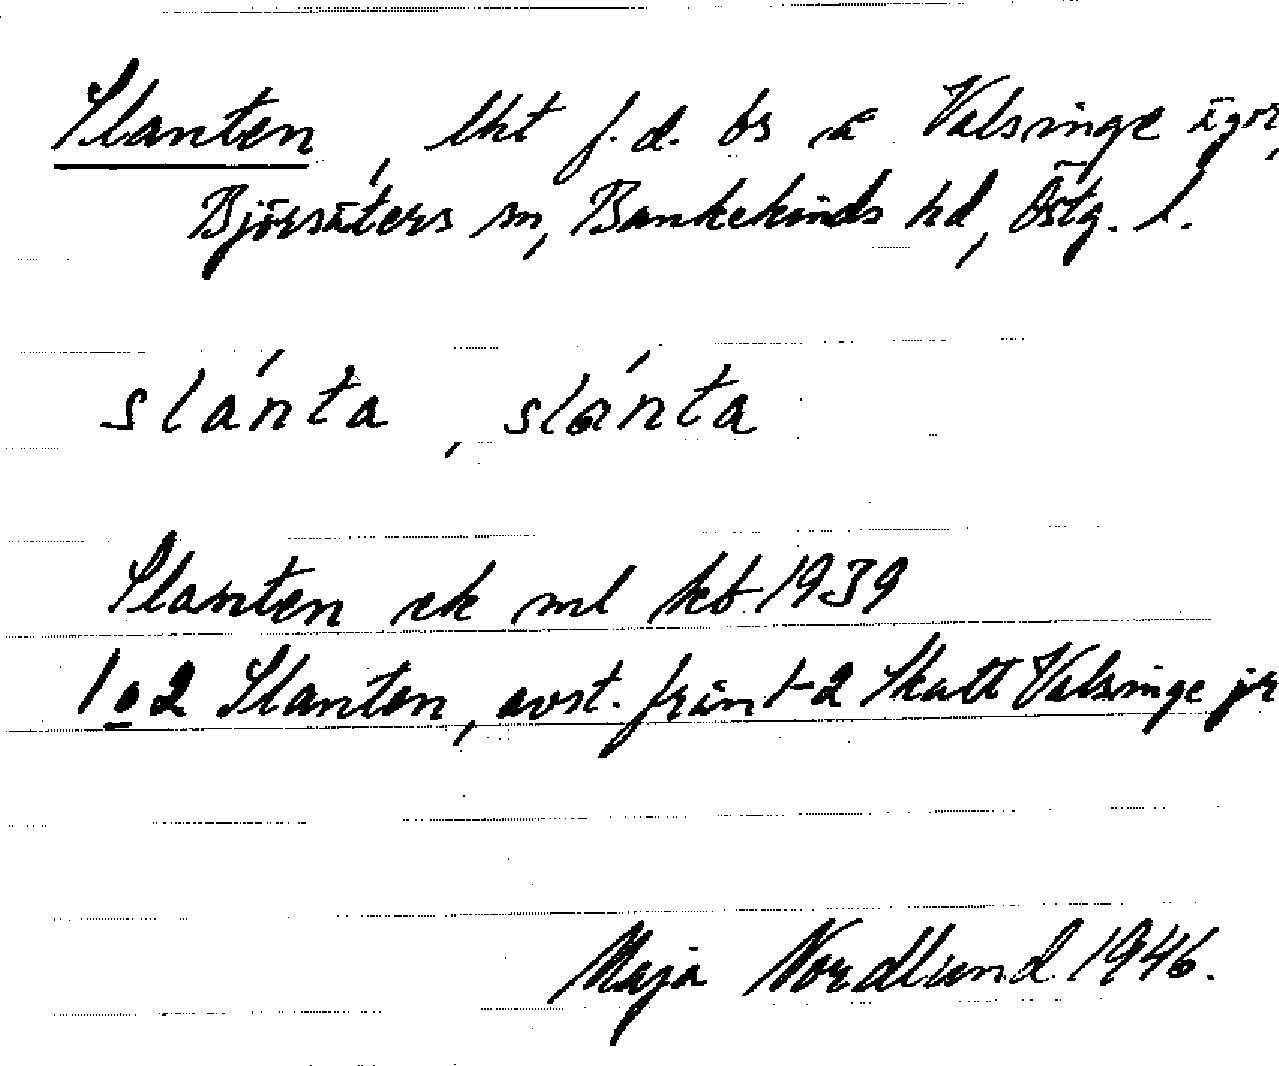 Slanten, lht f.d. bs å Valsinge ägor,
Björsäters sn, Bankekinds hd, Östg. l.
slánta, slánta
Slanten ek ml kb 1939
1 o 2 Slanten, avst. från 1-2 Skatt Valsinge jr
Maja Nordlund 1946.